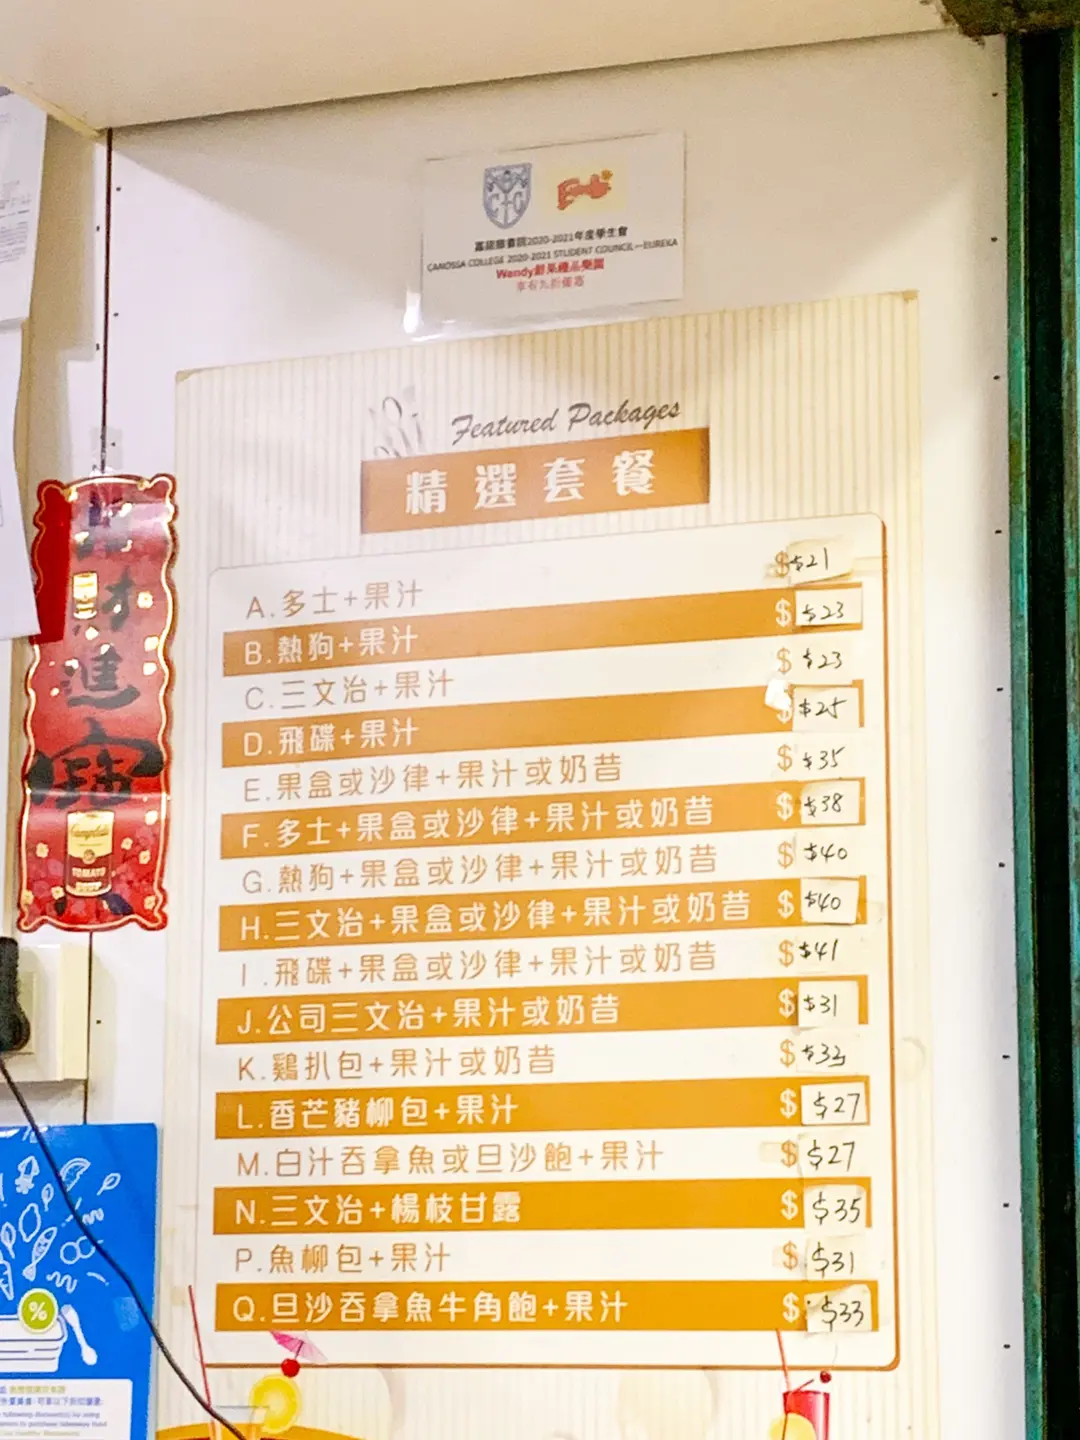 嘉諾撒書院2020-2021年度學生會
CANOSSA COLLEGE 2020-2021 STUDENT COUNCIL—EUREKA
Wendy鮮果禮品樂園
享有九折優惠
Featured Packages
精選套餐
A.多士+果汁 $ $21
B.熱狗+果汁 $ $23
C.三文治+果汁 $ $23
D.飛碟+果汁 $ $25
E.果盒或沙律+果汁或奶昔 $ $35
F.多士+果盒或沙律+果汁或奶昔 $ $38
G.熱狗+果盒或沙律+果汁或奶昔 $ $40
H.三文治+果盒或沙律+果汁或奶昔 $ $40
I.飛碟+果盒或沙律+果汁或奶昔 $ $41
J.公司三文治+果汁或奶昔 $ $31
K.鷄扒包+果汁或奶昔 $ $32
L.香芒豬柳包+果汁 $ $27
M.白汁吞拿魚或旦沙飽+果汁 $ $27
N.三文治+楊枝甘露 $ $35
P.魚柳包+果汁 $ $31
Q.旦沙吞拿魚牛角飽+果汁 $ $33
財進寶
Campbell's
TOMATO
SOUP
%